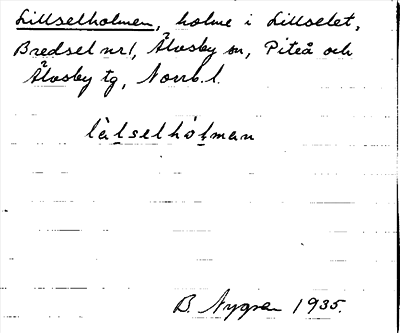 Lillselholmen, holme i Lillselet,
Bredsel nr 1, Älvsby sn, Piteå och
Älvsby tg, Norrb. l.
lạ̀lselhólman
B. Nygren 1935.